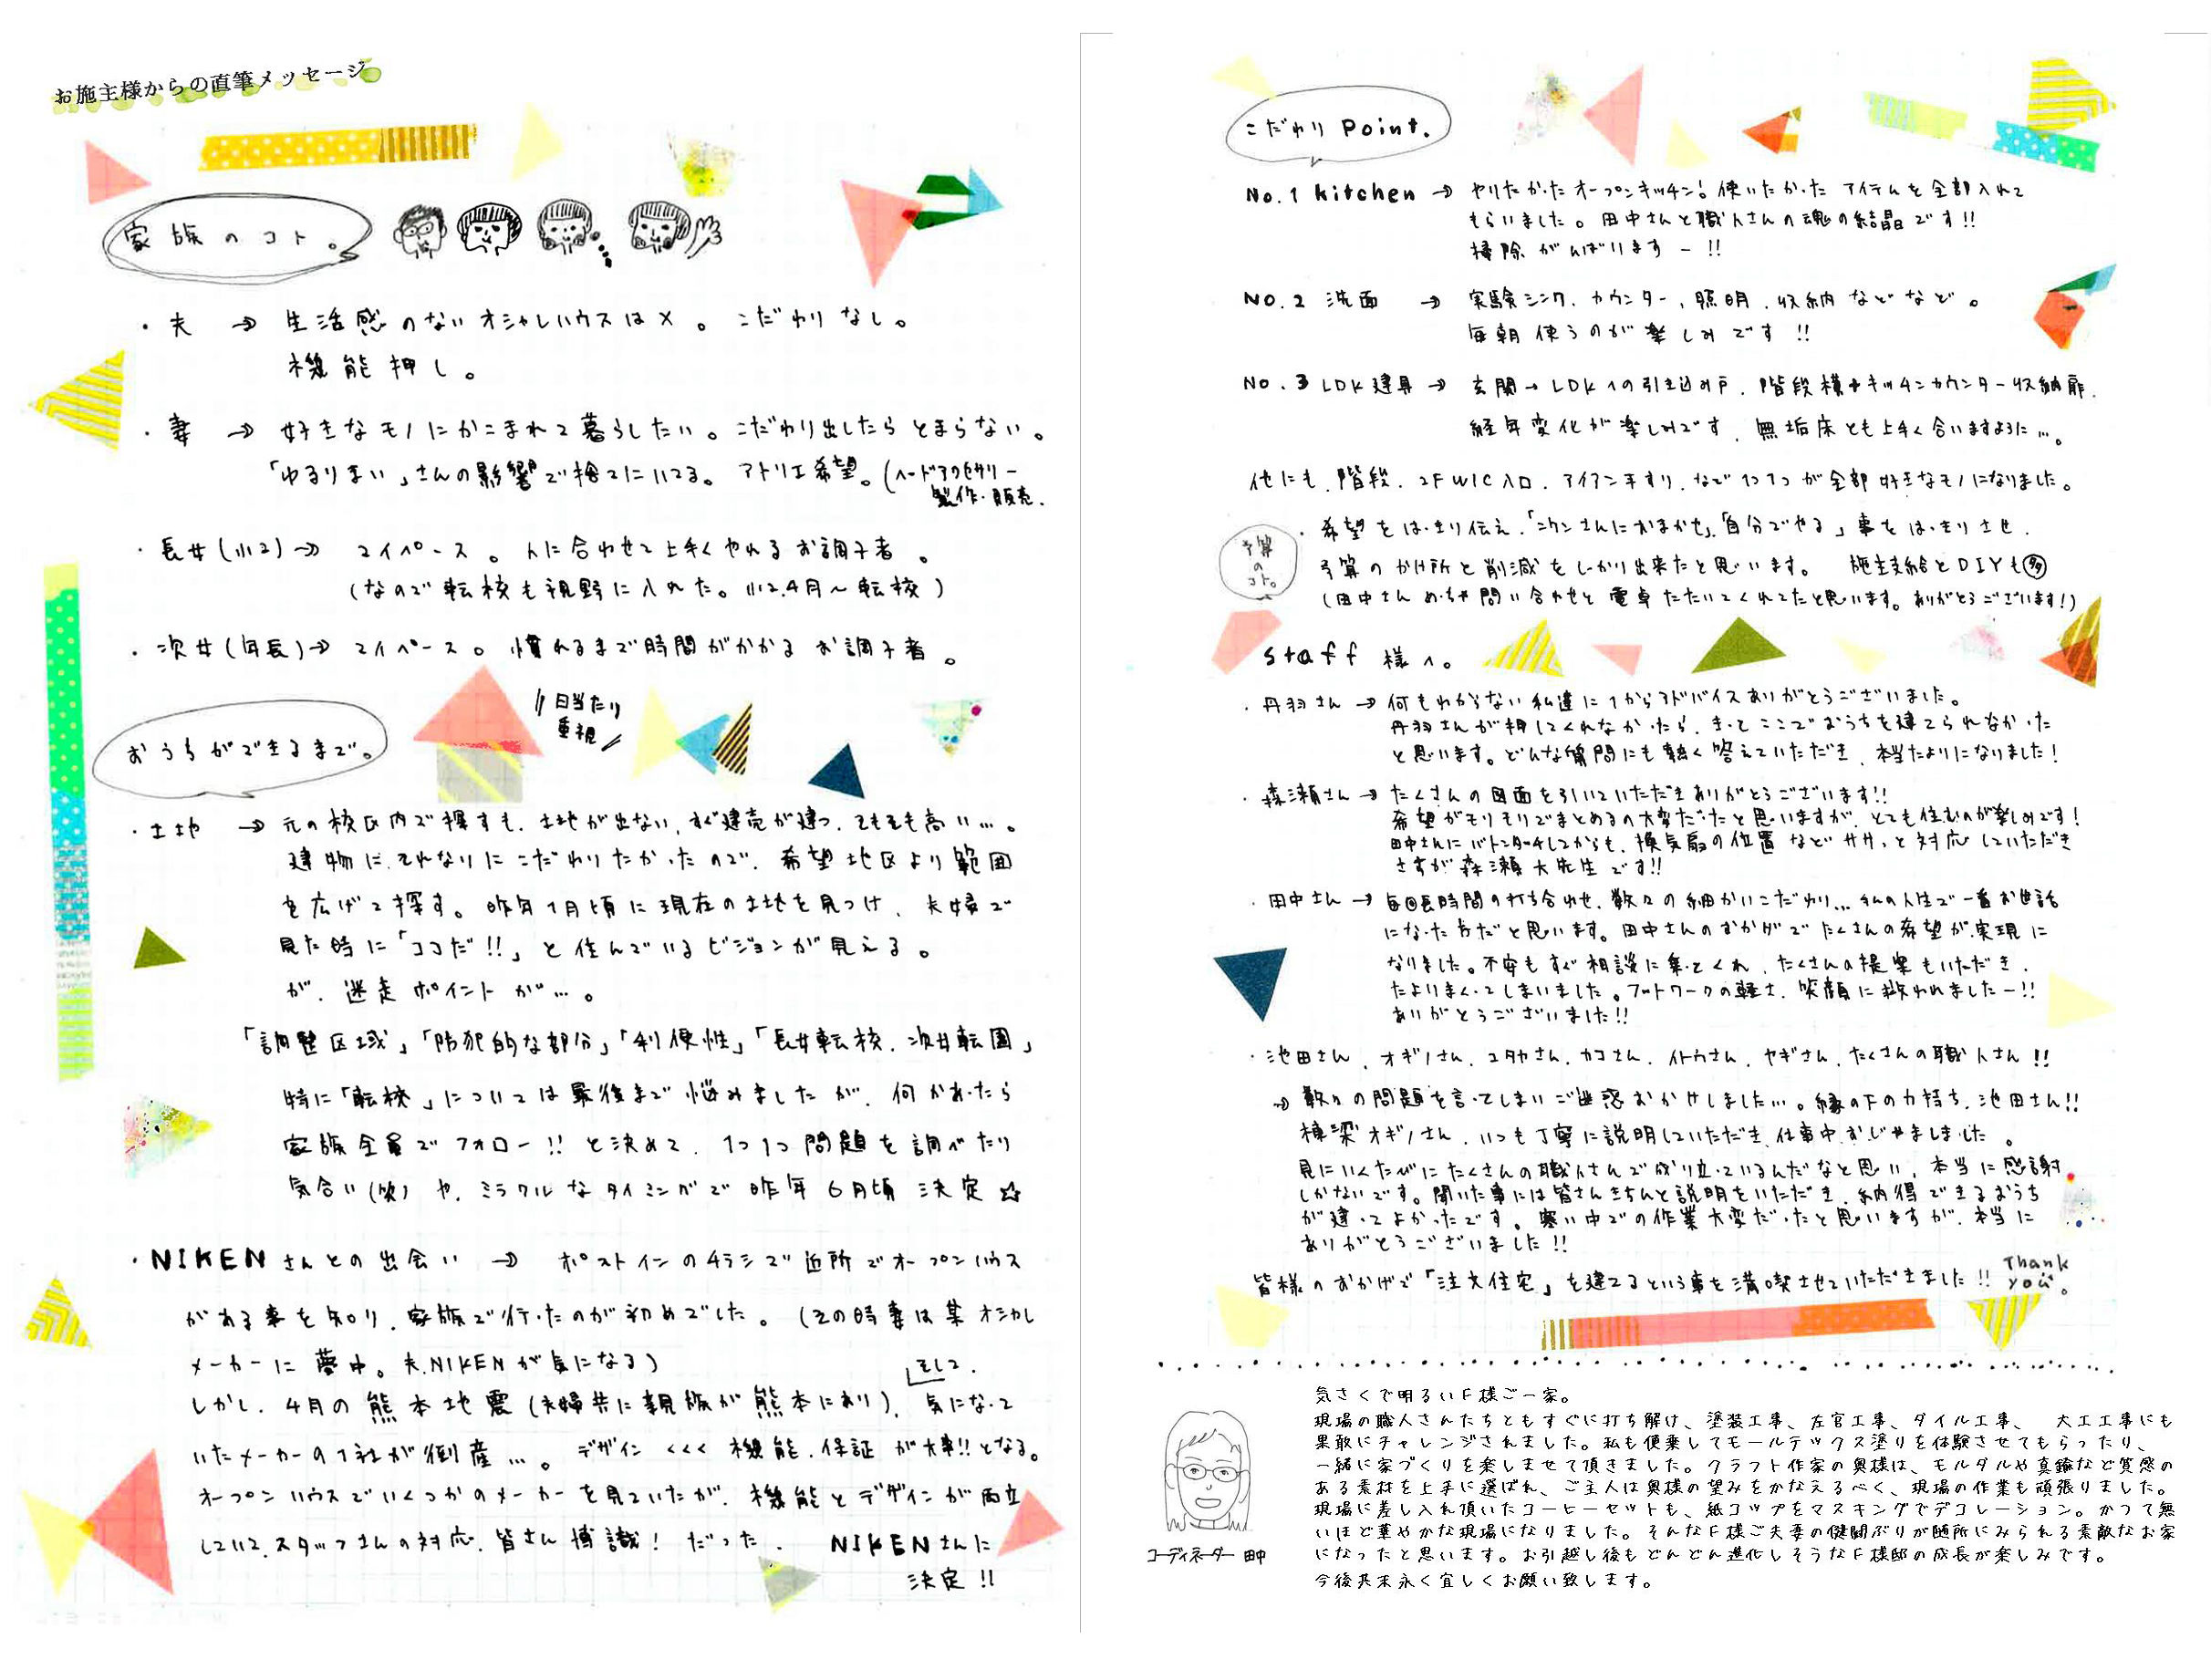 お施主様からの直筆メッセージ
家族のコト。
・夫 → 生活感のないオシャレハウスは×。こだわりなし。
機能押し。
・妻 → 好きなモノにかこまれて暮らしたい。こだわり出したらとまらない。
「ゆるりまい」さんの影響で捨てにいてる。アトリエ希望。(ヘッドアクセサリー
製作・販売.
・長女(小2)→ マイペース。人に合わせて上手くやれるお調子者。
(なので転校も視野に入れた。小2.4月〜転校)
・次女(年長)→ マイペース。慣れるまで時間がかかるお調子者。
おうちができるまで。
日当たり
重視
・土地 → 元の校区内で探すも、土地が出ない、すぐ建売が建つ、そもそも高い…。
建物に、それなりにこだわりたかったので、希望地区より範囲
を広げて探す。昨年1月頃に現在の土地を見つけ、夫婦で
見た時に「ココだ!!」と住んでいるビジョンが見える。
が、迷走ポイントが…。
「調整区域」「防犯的な部分」「利便性」「長女転校、次女転園」
特に「転校」については最後まで悩みましたが、何かあったら
家族全員でフォロー!!と決めて、1つ1つ問題を調べたり
気合い(笑)や、ミラクルなタイミングで昨年6月頃決定☆
・NIKENさんとの出会い → ポストインのチラシで近所でオープンハウス
がある事を知り、家族で行ったのが初めでした。(その時妻は某オシャレ
メーカーに夢中。夫、NIKENが気になる)
そして、
しかし、4月の熊本地震(夫婦共に親族が熊本にあり)、気になって
いたメーカーの1社が倒産…。デザイン<<<機能、保証が大事!!となる。
オープンハウスでいくつかのメーカーを見ていたが、機能とデザインが両立
していて、スタッフさんの対応、皆さん博識!だった、NIKENさんに
決定!!
こだわり Point.
No.1 kitchen → やりたかったオープンキッチン!使いたかったアイテムを全部入れて
もらいました。田中さんと職人さんの魂の結晶です!!
掃除がんばりますー!!
NO.2 洗面 → 実験シンク、カウンター、照明、収納などなど。
毎朝使うのが楽しみです!!
NO.3 LDK建具 → 玄関→LDKへの引き込み戸、階段横+キッチンカウンター収納扉、
経年変化が楽しみです、無垢床とも上手く合いますように…。
他にも、階段、2FWIC入口、アイアン手すり、など1つ1つが全部好きなモノになりました。
予算
の
コト。
・希望をはっきり伝え、「ニケンさんにおまかせ」、「自分でやる」事をはっきりさせ、
予算のかけ所と削減をしっかり出来たと思います。 施主支給とDIYも多
(田中さんめっちゃ問い合わせと電卓たたいてくれてたと思います。ありがとうございます!)
staff 様へ。
・丹羽さん → 何もわからない私達に1からアドバイスありがとうございました。
丹羽さんが押してくれなかったら、きっとここでおうちを建てられなかった
と思います。どんな質問にも熱く答えていただき、本当たよりになりました!
・森瀬さん → たくさんの図面を引いていただきありがとうございます!!
希望がモリモリでまとめるの大変だったと思いますが、とても住むのが楽しみです!
田中さんにバトンタッチしてからも、換気扇の位置などササッと対応していただき
さすが森瀬大先生です!!
・田中さん → 毎回長時間の打ち合わせ、数々の細かいこだわり… 私の人生で一番お世話
になった方だと思います。田中さんのおかげでたくさんの希望が実現に
なりました。不安もすぐ相談に乗ってくれ、たくさんの提案もいただき、
たよりまくってしまいました。フットワークの軽さ、笑顔に救われましたー!!
ありがとうございました!!
・池田さん、オギノさん、ユタヤさん、カコさん、イトウさん、ヤギさん、たくさんの職人さん!!
→ 数々の問題を言ってしまいご迷惑おかけしました…。縁の下の力持ち、池田さん!!
棟梁オギノさん、いつも丁寧に説明していただき、仕事中おじゃましました。
見にいくたびにたくさんの職人さんで成り立っているんだなと思い、本当に感謝
しかないです。聞いた事には皆さんきちんと説明をいただき、納得できるおうち
が建ってよかったです。寒い中での作業大変だったと思いますが、本当に
ありがとうございました!!
皆様のおかげで「注文住宅」を建てるという事を満喫させていただきました!!
Thank
you.
気さくで明るいF様ご一家。
現場の職人さんたちともすぐに打ち解け、塗装工事、左官工事、タイル工事、 大工工事にも
果敢にチャレンジされました。私も便乗してモールテックス塗りを体験させてもらったり、
一緒に家づくりを楽しませて頂きました。クラフト作家の奥様は、モルタルや真鍮など質感の
ある素材を上手に選ばれ、ご主人は奥様の望みをかなえるべく、現場の作業も頑張りました。
現場に差し入れ頂いたコーヒーセットも、紙コップをマスキングでデコレーション。かつて無
いほど華やかな現場になりました。そんなF様ご夫妻の健闘ぶりが随所にみられる素敵なお家
になったと思います。お引越し後もどんどん進化しそうなF様邸の成長が楽しみです。
今後共末永く宜しくお願い致します。
コーディネーター 田中